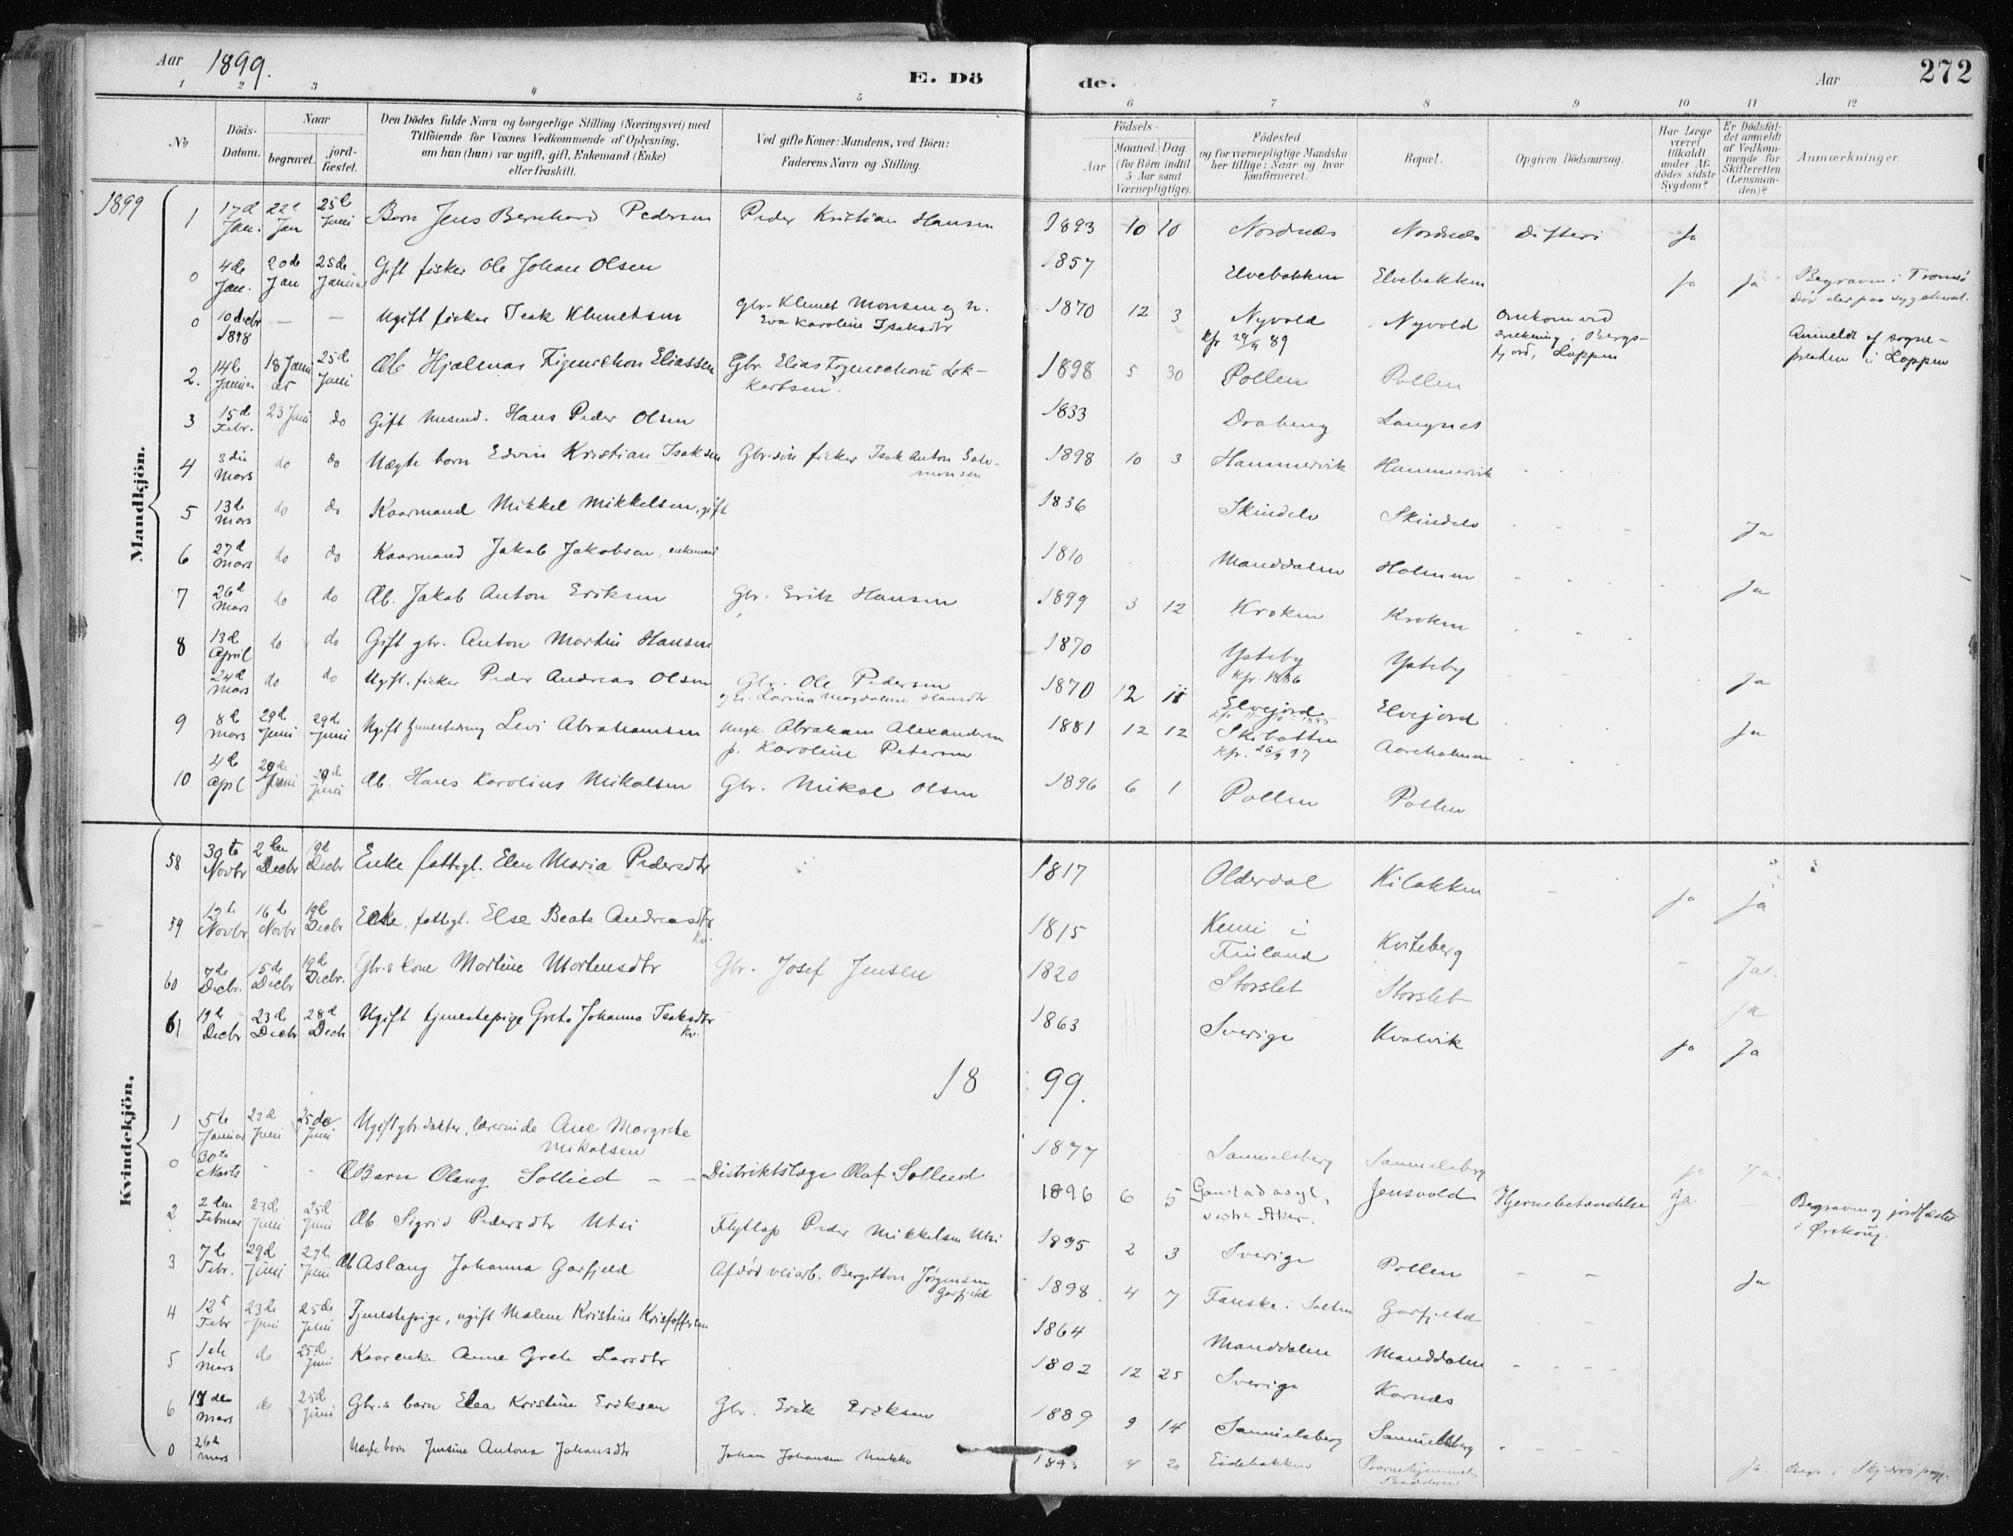 Aar 1899.
E. Dö
de.
Aar
272
1 2 3 4 5 6 7 8 9 10 11 12
No
Döds-Datum.
Naar
begravet.
jord-fæstet.
Den Dödes fulde Navn og borgerlige Stilling (Næringsvei) med
Tilföiende for Voxnes Vedkommende af Oplysning,
om han (hun) var ugift, gift, Enkemand (Enke)
eller fraskilt.
Ved gifte Koner: Mandens, ved Börn:
Faderens Navn og Stilling.
Födsels-
Aar
Maaned. Dag.
(for Börn indtil
5 Aar samt
Værnepligtige).
Födested
og for værnepligtige Mandska-
ber tillige: Naar og hvor
konfirmeret.
Bopæl.
Opgiven Dödsaarsag.
Har Læge
været
tilkaldt
under Af-
dödes sidste
Sygdom?
Er Dödsfal-
det anmeldt
af Vedkom-
mende for
Skifteretten
(Lensman-
den)?
Anmærkninger.
Mandkjön.
1899 1 17d Jan. 22d Jan 25d Juni Barn Jens Bernhard Pedersen Peder Kristian Hansen 1893 10 10 Nordnæs Nordnæs Difteri Ja
0 4de Jan. 20de Jan 25de Januar Gift fisker Ole Johan Olsen 1857 Elvebakken Elvebakken Ja Ja Begraven i Tromsö
död der paa sygehuset.
0 10 decbr 1898 — — Ugift fisker Isak Klemetsen Gbr. Klemet Monsen og h.
Eva Karoline Isaksdtr 1870 12 3 Nyvold Nyvold Omkom ved
drukning i Bergs-
fjord, Loppen Anmeldt af sogne-
presten i Loppen
2. 14d Januar 18 Januar 25d Juni Æb Hjalmar Figenschou Eliassen Gbr. Elias Figenschou Lok-
kertsen. 1898 5 30 Pollen Pollen
3 15d Febr. 23 Juni do Gift Husmd. Hans Peder Olsen 1833 Drabeng Langnes
4 3die Mars do do Uægte barn Edvin Kristian Isaksen Gbr.sön fisker Isak Anton Salo-
monsen 1898 10 3 Hammervik Hammervik
5 13d Mars do do Kaarmand Mikkel Mikkelsen, gift 1836 Skindelv Skindelv Ja
6 27d Mars do do Kaarmand Jakob Jakobsen, enkemand 1810 Manddalen Holmen Ja
7 26d Mars do do Æb. Jakob Anton Eriksen Gbr. Erik Hansen 1899 3 12 Kroken Kroken
8 13d April do do Gift gbr. Anton Martin Hansen 1870 Ysteby
Kfr. 1886 Ysteby Ja
24d Mars do do Ugift. fisker Peder Andreas Olsen Gbr. Ole Pedersen
Larina Magdalene Hansdtr 1870 12 11 Elvejord Elvejord
9 8d Mars 29d Juni 29d Juni Ugift tjenestedreng Levi Abrahamsen Ungk. Abraham Alexandersen
p. Karoline Petersen 1881 12 12 Skibotten Aarøholmen Ja
10 4d April 29de Juni 29de Juni Æb. Hans Karolius Mikalsen Gbr. Mikal Olsen 1896 6 1 Pollen Pollen
Kvindekjön.
58 30te Novbr 2den Decbr 19d Decbr Enke fattigl. Elen Maria Pedersdtr 1817 Olderdal Kilakken Ja Ja
59 12te Novbr 16d Novbr 19d Decbr Enke, fattigl. Else Beate Andreasdtr
kv. 1815 Kemi i
Finland Kviteberg Ja.
60 7de Decbr. 15de Decbr 19d Decbr. Gbr.s kone Martine Mortensdtr Gbr. Josef Jensen 1820 Storslet Storslet Ja
61 19d Decbr 23d Decbr 28d Decb Ugift tjenestepige Grete Johanna Isaksdtr
kv. 1863 Sverige Kvalvik Ja Ja
18 99.
1 5te Januar 23d Juni 25de Juni Ugift gbr.datter, lærerinde Ane Margrethe
Mikalsen 1877 Samuelsberg Samuelsberg Ja Ja.
0 30te Marts - - ÆBarn Olaug Sollied — — Distriktslæge Olaf Sollied 1896 6 5 Gaustad asyl,
vestre Aker. Jensvold Hjernebetændelse Ja — Begraven og jordfæstet
i Ørskoug.
2 2den Februar 23d Juni 25d Juni Æb. Sigrid Pedersdtr Utsi Flytlap Peder Mikkelsen Utsi 1895 2 3 Sverige Pollen - - Ja
3 7d Febr. 29d Juni 27d Juni Æb Aslaug Johanna Garfjeld Afdød veiarb. Bergitton Jørgensen
Garfjeld 1898 4 7 Fauske i Salten Garfjeld
4 12t Febr 23de Juni 25de Juni Tjenestepige, ugift Malene Kristine Kristoffersen 1864 Manddalen Manddalen
5 1ste Mars do 25d Juni Kaarenke Anne Grete Larsdtr 1802 12 25 Sverige Kornæs
6 17den Mars do 25d Juni Gbr.s barn Elea Kristine Eriksen Gbr. Erik Eriksen 1889 9 14 Samuelsberg Samuelsberg
0 26th Mars Uægte barn Jensine Antona Johansdtr Johan Johansen Mukko 4 20 Eidebakken Ja. Begr. i Skjærvö